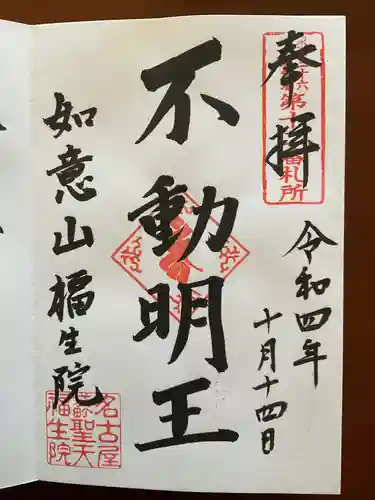 奉拝
令和四年
十月十四日
不動明王
如意山福生院
名古屋
聖天
福生院
札所